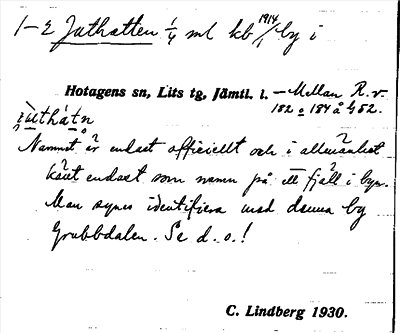 1-2 Juthatten 1/4 ml kb 1914/1 by i
Hotagens sn, Lits tg, Jämtl. l. — Mellan R.r.
182 o 184 å 52.
Namnet är endast officiellt och i allmänhet
känt endast som namn på ett fjäll i byn.
Man synes identifiera med denna by
Grubbdalen. Se d. o.!
C. Lindberg 1930.